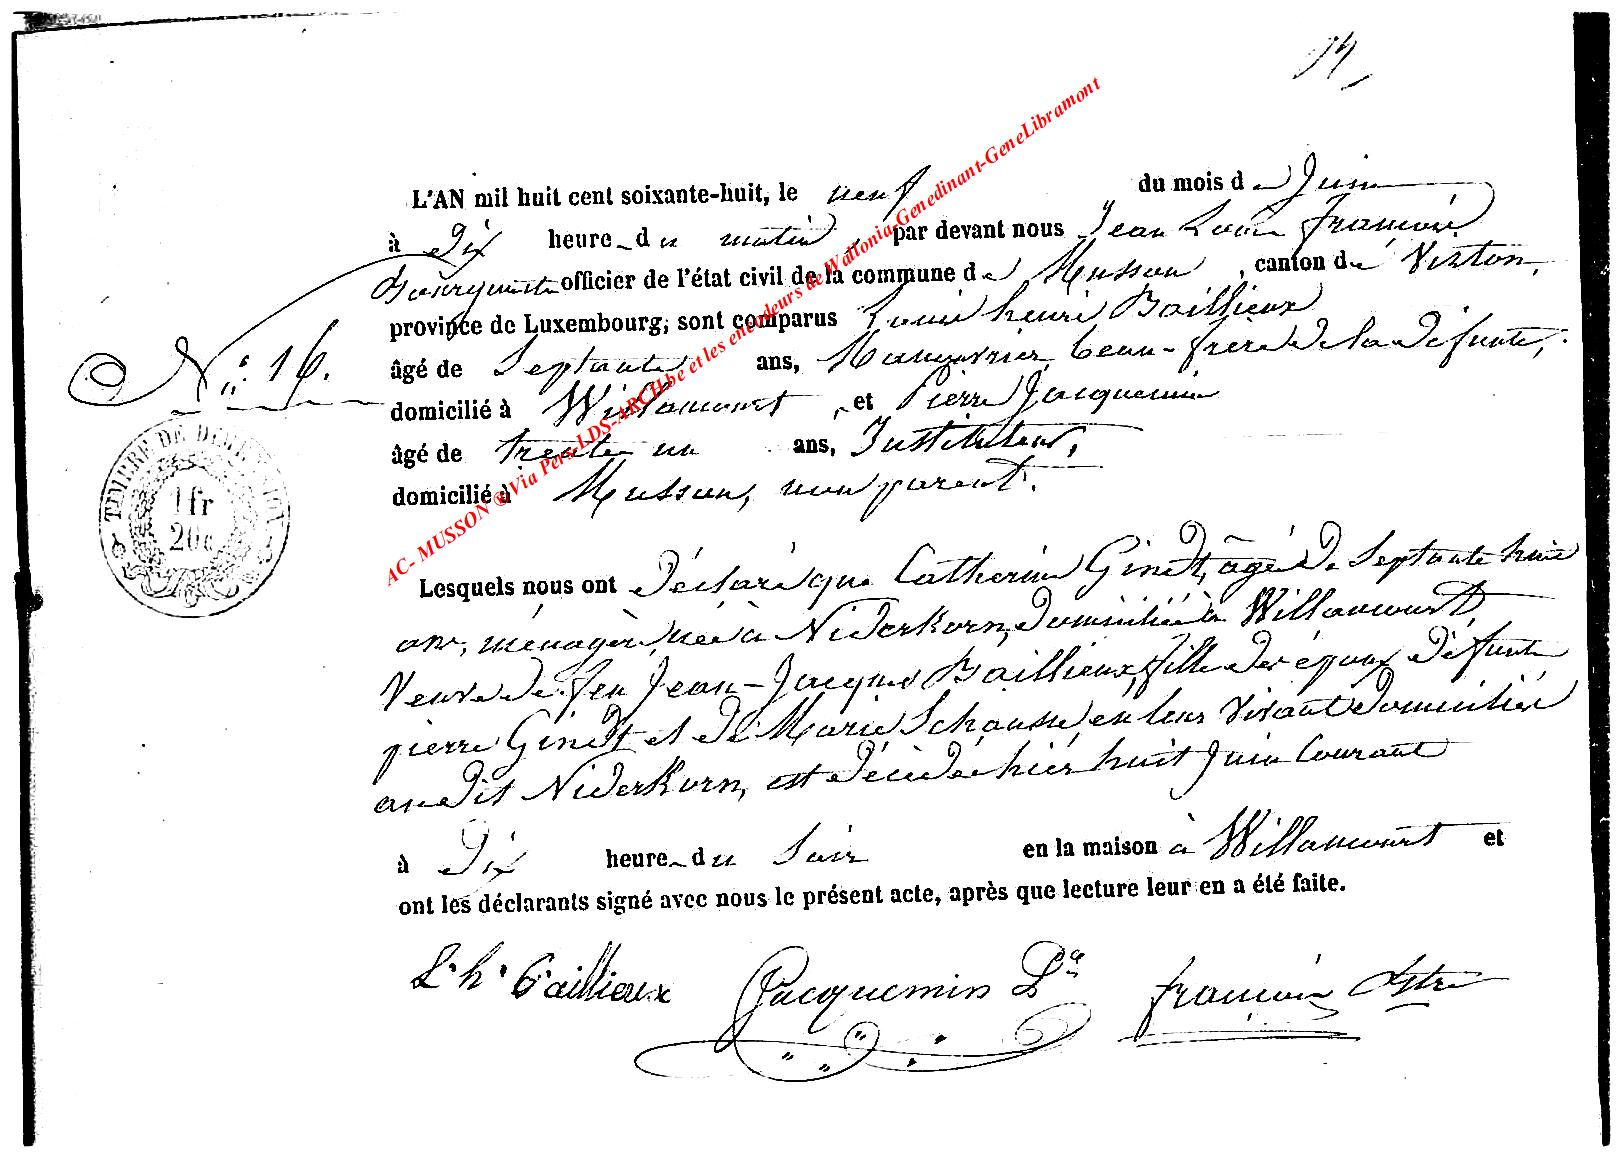 L'AN mil huit cent soixante-huit, le neuf du mois de Juin
à Dix heure du matin, par devant nous Jean Louis François
officier de l'état civil de la commune de Musson, canton de Virton,
province de Luxembourg, sont comparus Louis henri Baillieux
âgé de Septante ans, Manouvrier, beau-frère de la défunte,
domicilié à Willancourt, et Pierre Jacquemin
âgé de trente un ans, Instituteur,
domicilié à Musson, non parent.
N° 16.
TIMBRE DE DIMENSION
1 fr
20c
Lesquels nous ont déclaré que Catherine Ginet, âgé de Septante huit
ans, ménagère, née à Niderkorn, domiciliée à Willancourt,
Veuve de feu Jean-Jacques Baillieux, fille des époux défunts
pierre Ginet et de Marie Schausse, en leur vivant domiciliés
au dit Niderkorn, est décédée hier huit Juin Courant
à Dix heure du Soir en la maison à Willancourt et
ont les déclarants signé avec nous le présent acte, après que lecture leur en a été faite.
L. h. Baillieux Jacquemin Pre françois
AC- MUSSON ® Via Pers-LDS-ARCH.be et les encodeurs de Wallonia-Genedinant-GeneLibramont